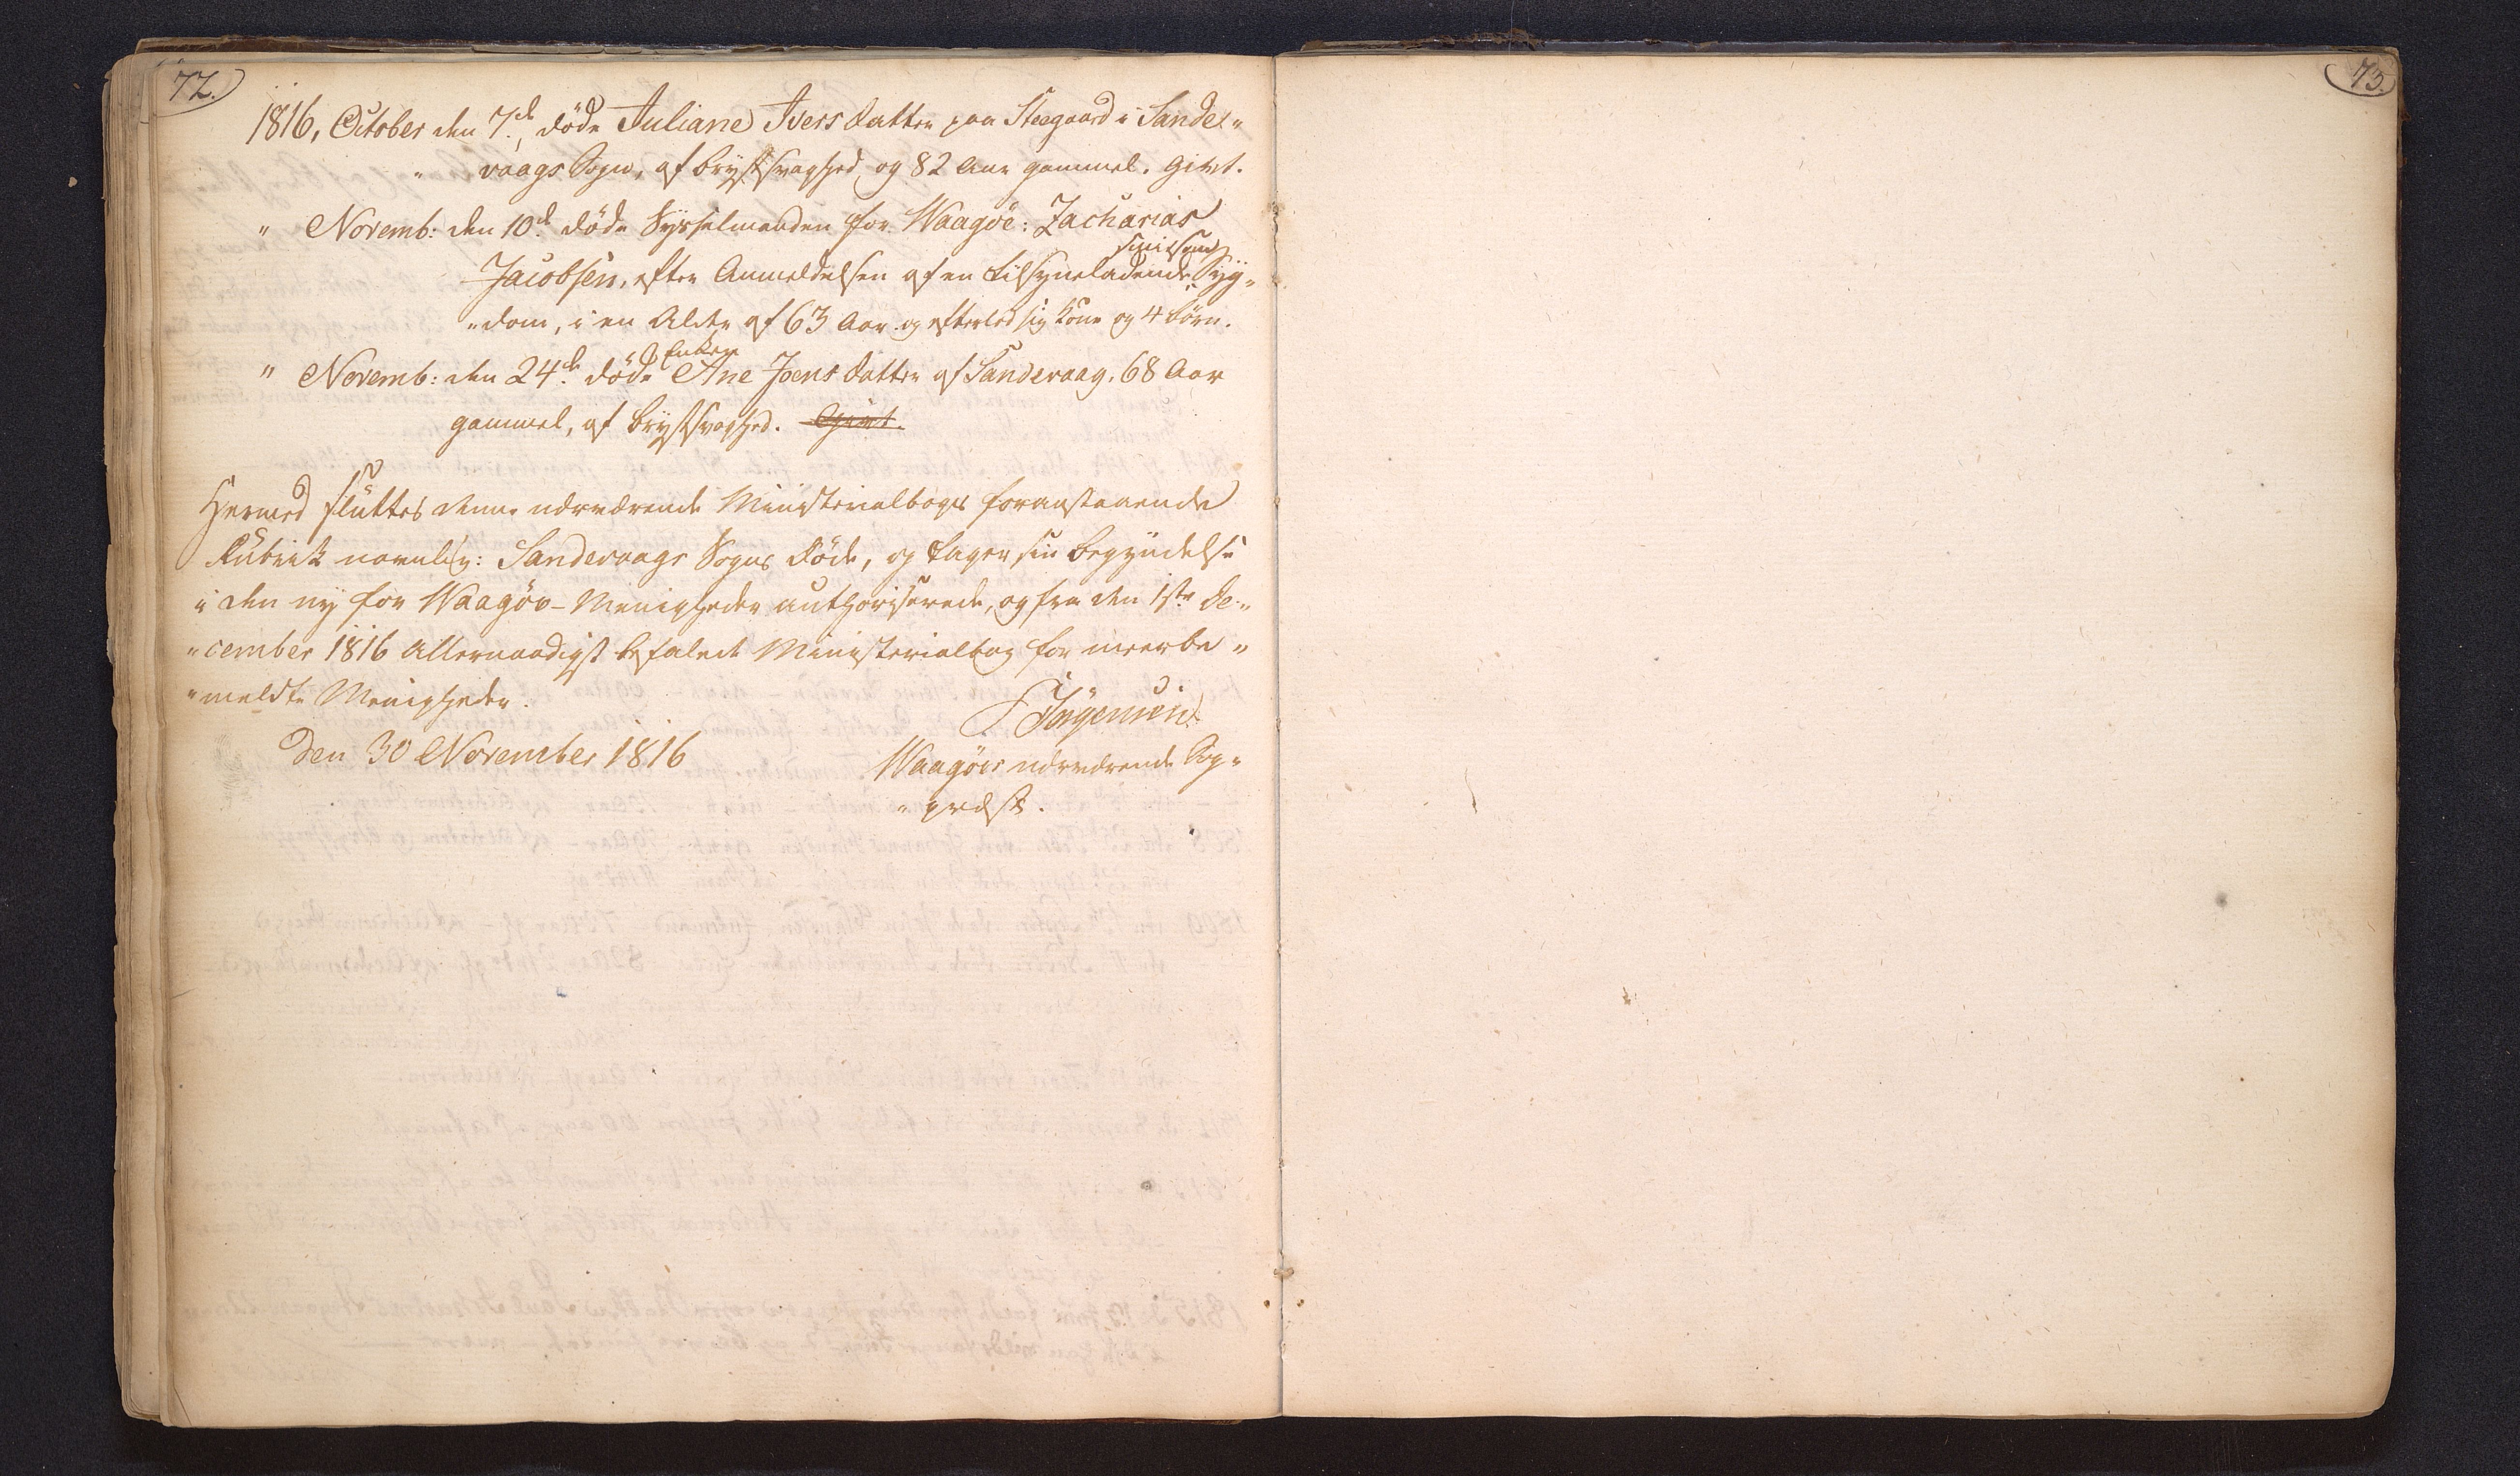 72.
73.
1816, October den 7de, døde Juliane Ivers datter paa Steegaard i Sande„
„ vaags Sogn, af brystsvaghed, og 82 Aar gammel. Givt.
„ Novemb: den 10de døde Sysselmanden for Waagøe: Zacharias
smitsom
Jacobsen, efter Anmeldelsen af en tilsyneladende Syg„
„dom, i en Alder af 63 Aar og efterlod sig Kone og 4 børn.
Enken
„ Novemb: den 24de døde Ane Joens datter af Sandevaag, 68 Aar
gammel, af brystsvaghed. Givt.
Hermed sluttes denne nærværende Ministerialbogs foranstaaende
Rubrik navnlig: Sandevaags Sogns døde, og tager sin begyndelse
i den ny for Waagøe-Menigheder authoriserede, og fra den 1ste De„
„cember 1816 allernaadigst befalede Ministerialbog for meerbe„
„meldte Menigheder.
Jörgensen
Den 30 November 1816
Waagøes nærværende Sog„
„præst.